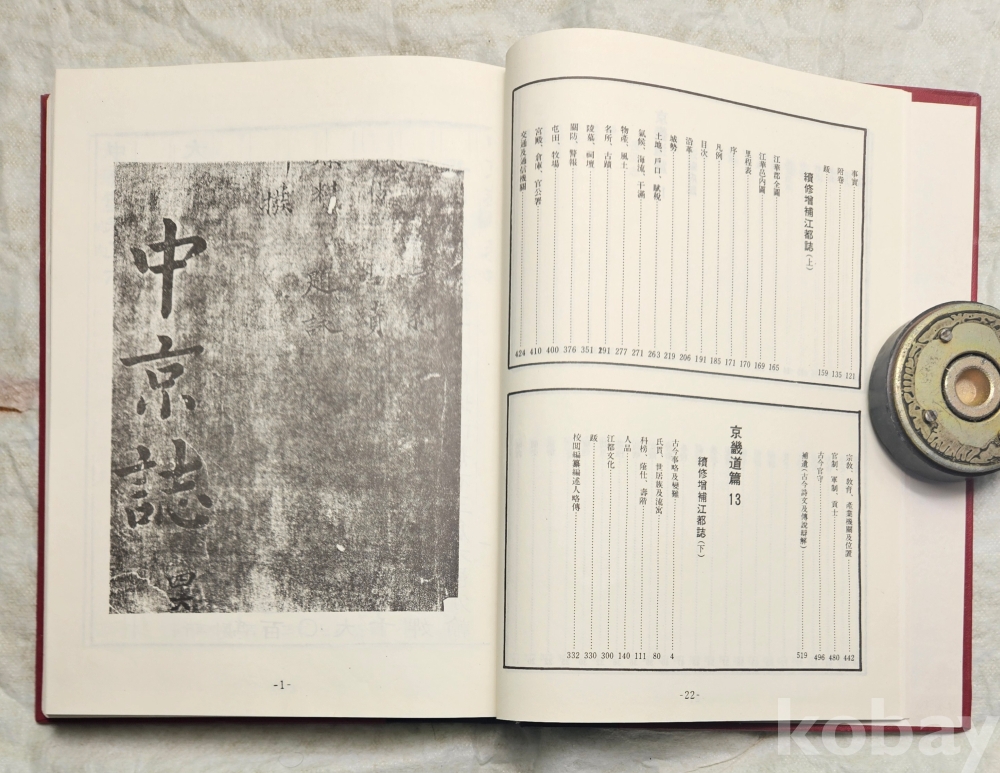 中京誌
四
撰
-1-
事實 121
附卷 135
跋 159
續修增補江都誌(上)
江華郡全圖 165
江華邑內圖 169
里程表 170
序 171
凡例 185
目次 191
沿革 206
城勢 219
土地、戶口、賦稅 263
氣候、海流、干滿 271
物産、風土 277
名所、古蹟 291
陵墓、祠壇 351
關防、警報 376
屯田、牧場 400
宮殿、倉庫、官公署 410
交通及通信機關 424
宗敎、敎育、產業機關及位置 442
官制、軍制、貢士 480
古今官守 496
補遺(古今詩文及傳說辯解) 519
京畿道篇 13
續修增補江都誌(下)
古今事略及變難 4
氏貫、世居族及流寓 80
科榜、蔭仕、壽階 111
人品 140
江都文化 300
跋 330
校閱編纂編述人略傳 332
-22-
kobay